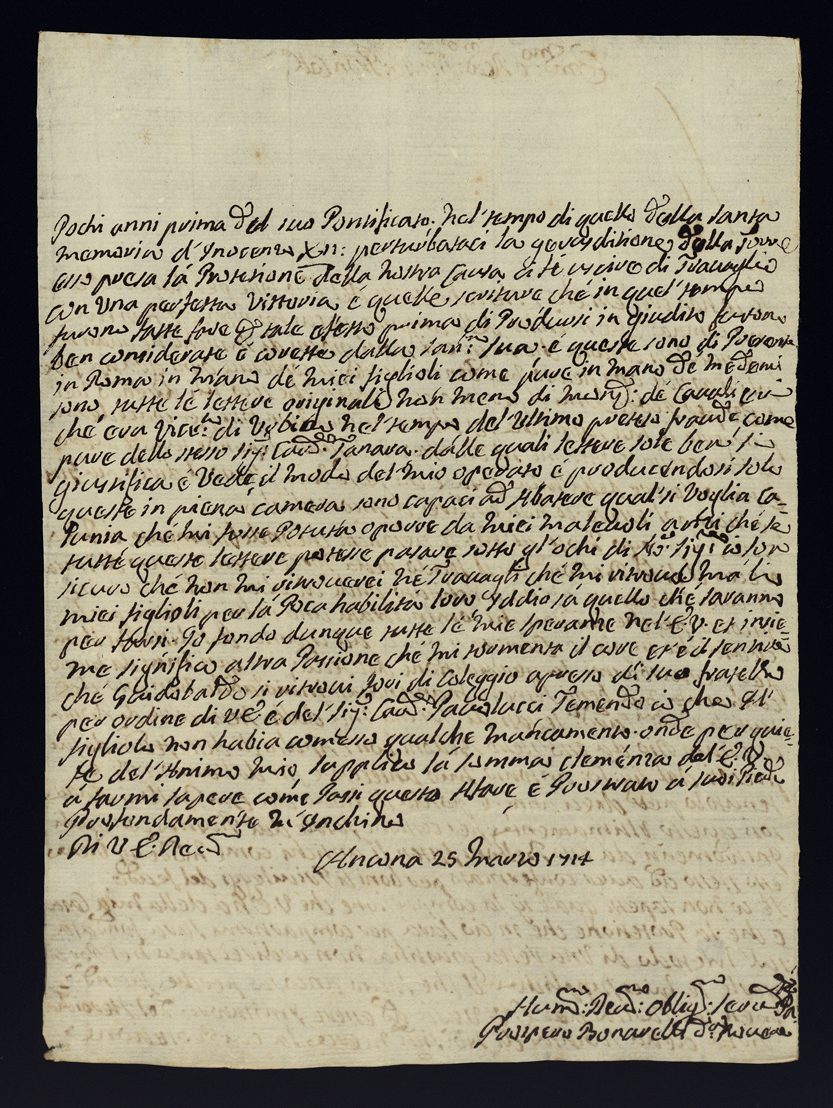 Pochi anni prima del suo Pontificato. nel tempo di quello della santa
memoria d'Inocenzo XII: perturbataci la giurisditione della Torre
esso presa la Protetione della nostra Causa ci fé uscire di Travaglio
con una perfetta Vittoria é quelle scritture ché in quel tempo
furono fatte fare per tale efetto prima di Prodursi in giuditio furono
ben considerate é corette dalla San: sua. é queste sono di Presente
in Roma in mano dé miei figlioli come pure in mano dé medemi
sono tutte lé lettere originali non meno di Mons: dé Cavalieri
ché era Vice: di Urbino nel tempo del Ultimo preteso fraude come
pure dello stesso Sig: Card: Tanara. dalle quali lettere sole ben si
giustifica é Vede il modo del mio operato é producendosi sole
queste in piena camera sono capaci ad Abatere qual si Voglia Ca=
lunia ché mi fosse Potuta oporre da miei malevoli ché se
tutte queste lettere potesse pasare sotto gl'ochi di io son
sicuro ché non mi ritroverei né Travagli ché mi ritrovo má li
miei figlioli per lá Poca habilitá loro Iddio sá quello ché saranno
per farsi. Io fondo dunque tutte lé mie speranze nel E.V. et insie=
me significo altra Passione ché mi tormenta il core et é il sentire
ché Guidobaldo si ritrovi fori di Coleggio apresso di suo fratello
per ordine di V.E. é del Sig: Card: Paolucci Temendo io che il
figliolo non habia comesso qualche mancamento. onde per quie=
te del Animo mio suplico lá somma clemenza del E.V.
á farmi sapere come Passi questo Afare é Prostrato á suoi Piedi
profondamente m'inchino
Di V.E. Rev:
Ancona 25 Marzo 1714
Hum: Dev: Oblig: Serv:
Prospero Bonarelli d. Rovere